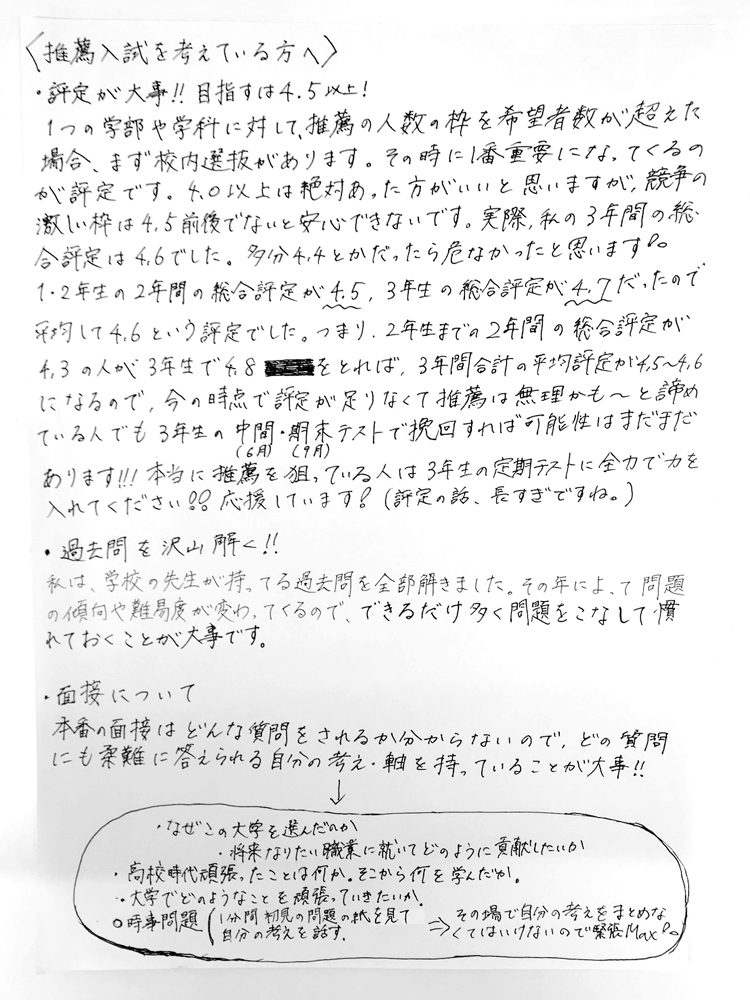 〈推薦入試を考えている方へ〉
・評定が大事!! 目指すは4.5以上!
1つの学部や学科に対して、推薦の人数の枠を希望者数が超えた
場合、まず校内選抜があります。その時に1番重要になってくるの
が評定です。4.0以上は絶対あった方がいいと思いますが、競争の
激しい枠は4.5前後でないと安心できないです。実際、私の3年間の総
合評定は4.6でした。多分4.4とかだったら危なかったと思います。
1・2年生の2年間の総合評定が4.5、3年生の総合評定が4.7だったので
平均して4.6という評定でした。つまり、2年生までの2年間の総合評定が
4.3の人が3年生で4.8をとれば、3年間合計の平均評定が4.5〜4.6
になるので、今の時点で評定が足りなくて推薦は無理かも〜と諦め
ている人でも3年生の中間・期末テストで挽回すれば可能性はまだまだ
(6月) (9月)
あります!!! 本当に推薦を狙っている人は3年生の定期テストに全力で力を
入れてください!! 応援しています! (評定の話、長すぎですね。)
・過去問を沢山解く!!
私は、学校の先生が持ってる過去問を全部解きました。その年によって問題
の傾向や難易度が変わってくるので、できるだけ多く問題をこなして慣
れておくことが大事です。
・面接について
本番の面接はどんな質問をされるか分からないので、どの質問
にも柔難に答えられる自分の考え・軸を持っていることが大事!!
↓
・なぜこの大学を選んだのか
・将来なりたい職業に就いてどのように貢献したいか
・高校時代頑張ったことは何か。そこから何を学んだか。
・大学でどのようなことを頑張っていきたいか。
○時事問題 (1分間初見の問題の紙を見て ⇒ その場で自分の考えをまとめな
自分の考えを話す. くてはいけないので緊張Max。